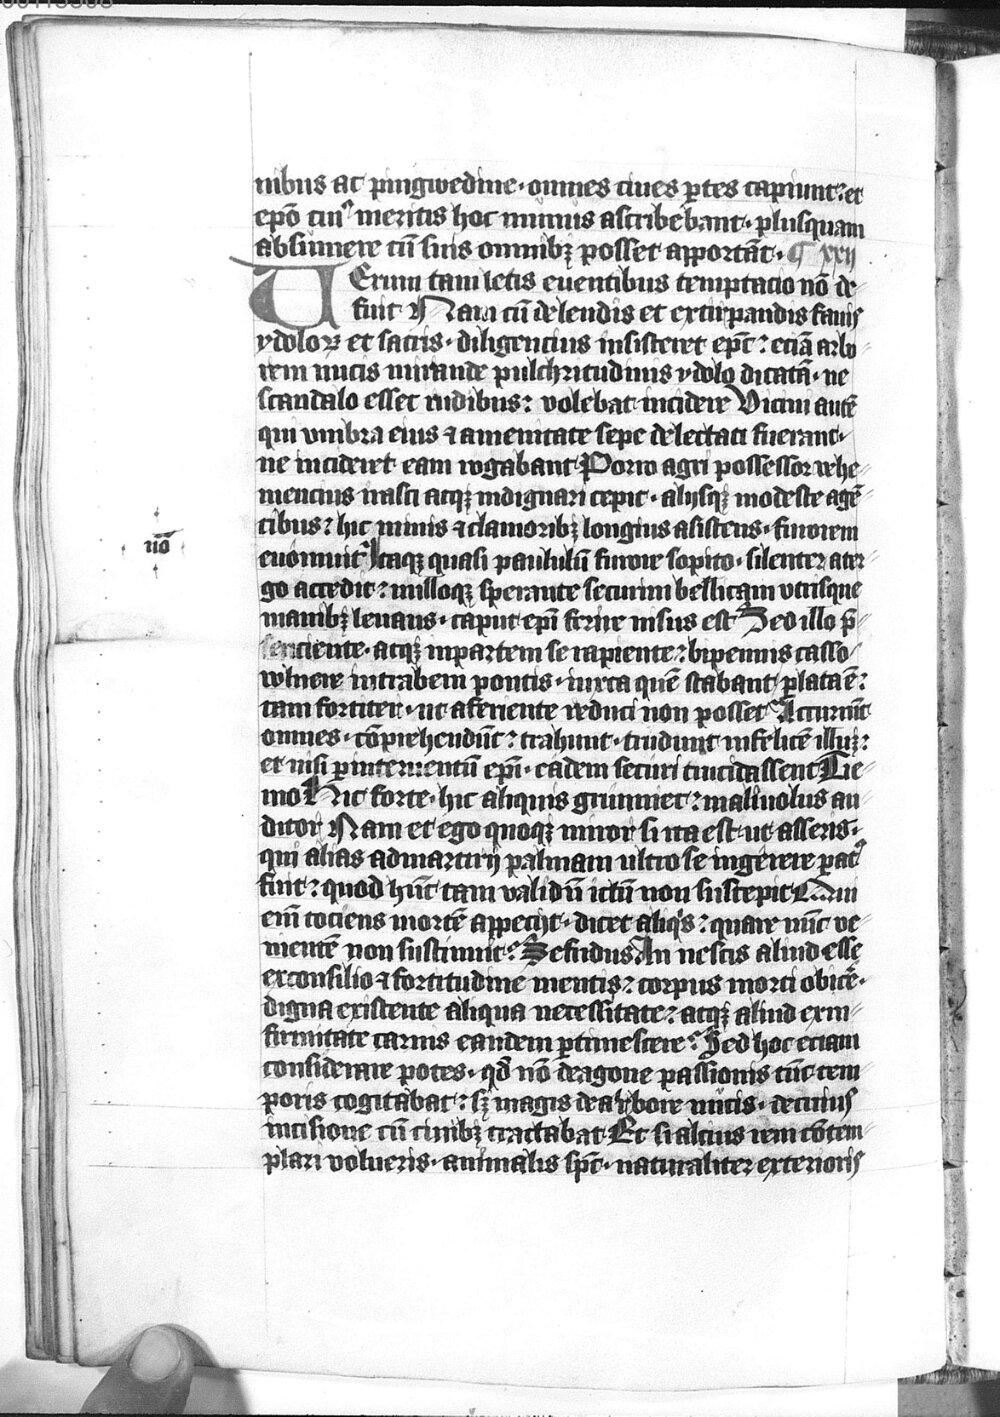 00113508
nibus ac pingwedine · omnes ciues ꝑtes capiunt: et
epō eiuꝰ meritis hoc munus ascribebant · plusquam
absumere cū suis omnibꝫ posset apportāt · ¶ XXII
UErum tam letis euentibus temptacio nō de⸗
fuit Nam cū delendis et extirpandis fanis
ydoloꝝ et sacris · diligencius insisteret epc̄: eciā arbo⸗
rem nucis mirande pulchritudinis ydolo dicatā · ne
scandalo esset rudibus: volebat incidere Vicini autē
qui vmbra eius ⁊ amenitate sepe delectati fuerant ·
ne incideret eam rogabant Porro agri possessor vehe⸗
mencius irasci atqꝫ indignari cepit · alijsqꝫ modeste agē⸗
tibus: hic minis ⁊ clamoribꝫ longius asistens · furorem
euomuit Itaqꝫ quasi paululū furore sopito · silenter ater⸗
go accedit: nulloqꝫ sperante securim bellicam vtrisque
manibꝫ leuans · caput epī ferire nisus est Sed illo p̄⸗
senciente · atqꝫ inpartem se rapiente: bipennis casso
wlnere intrabem pontis · iuxta quē stabant ꝑlata ē:
tam fortiter · ut aferiente reduci non posset Accurrūt
omnes · cōprehendūt: trahunt · trudunt infelicē illuꝫ:
et nisi ꝑ interuentū epī · eadem securi trucidassent Tie⸗
mo Hic forte · hic aliquis grunniet: maliuolus au⸗
ditor Nam et ego quoqꝫ miror si ita est ut asseris ·
qui alias admartirij palmam ultro se ingerere parat
fuit: quod hūc tam validū ictū non suscepit Qui
eīm tociens mortē appecijt · dicet aliqs: quare nūc ve⸗
nientē non sustinuit: Sefridus An nescis aliud esse
exconsilio ⁊ fortitudine mentis: corpus morti obicē ·
digna existente aliqua necessitate: atqꝫ aliud exin⸗
firmitate carnis eandem ꝑtimescere: Sed hoc eciam
considerare potes · qd̄ nō deagone passionis tūc tem⸗
poris cogitabat: sꝫ magis dearbore nucis · decuius
incisione cū ciuibꝫ tractabat Et si alcius rem cōtem⸗
plari volueris · animalis spc̄ · naturaliter exterioris
nō